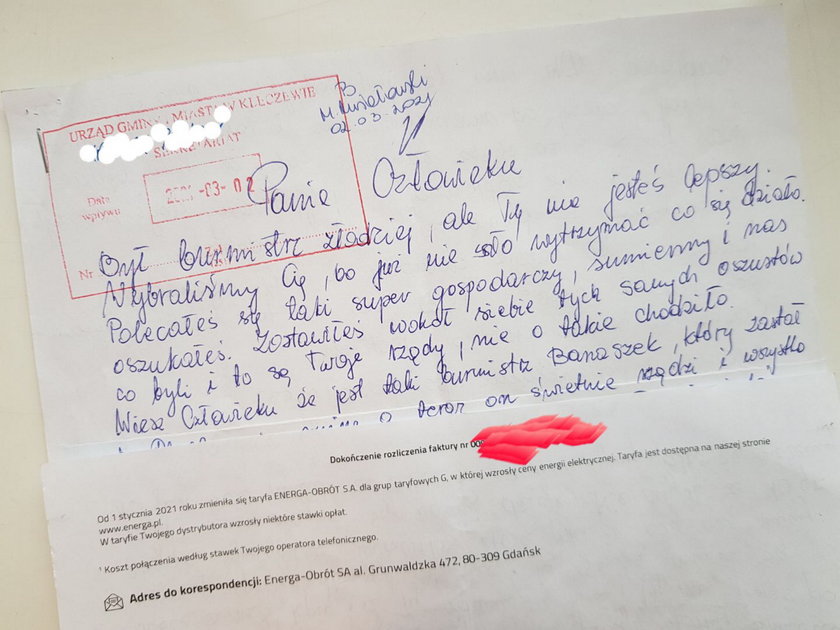 URZĄD GMINY I MIASTA W KLECZEWIE
SEKRETARIAT
Data
wpływu
2021 -03- 02
Nr
B.
M.
02.03.2021
Panie Człowieku
Był burmistrz złodziej, ale Ty nie jesteś lepszy.
Wybraliśmy Cię, bo już nie szło wytrzymać co się działo.
Polecałeś się taki super gospodarczy, sumienny i nas
oszukałeś. Zostawiłeś wokół siebie tych samych oszustów
co byli i to są Twoje rządy, nie o takie chodziło.
Wiesz Człowieku że jest taki burmistrz Banaszek, który zastał
a teraz on świetnie rządzi i wszystko
Dokończenie rozliczenia faktury nr
Od 1 stycznia 2021 roku zmieniła się taryfa ENERGA-OBRÓT S.A. dla grup taryfowych G, w której wzrosły ceny energii elektrycznej. Taryfa jest dostępna na naszej stronie
www.energa.pl.
W taryfie Twojego dystrybutora wzrosły niektóre stawki opłat.
¹ Koszt połączenia według stawek Twojego operatora telefonicznego.
Adres do korespondencji: Energa-Obrót SA al. Grunwaldzka 472, 80-309 Gdańsk